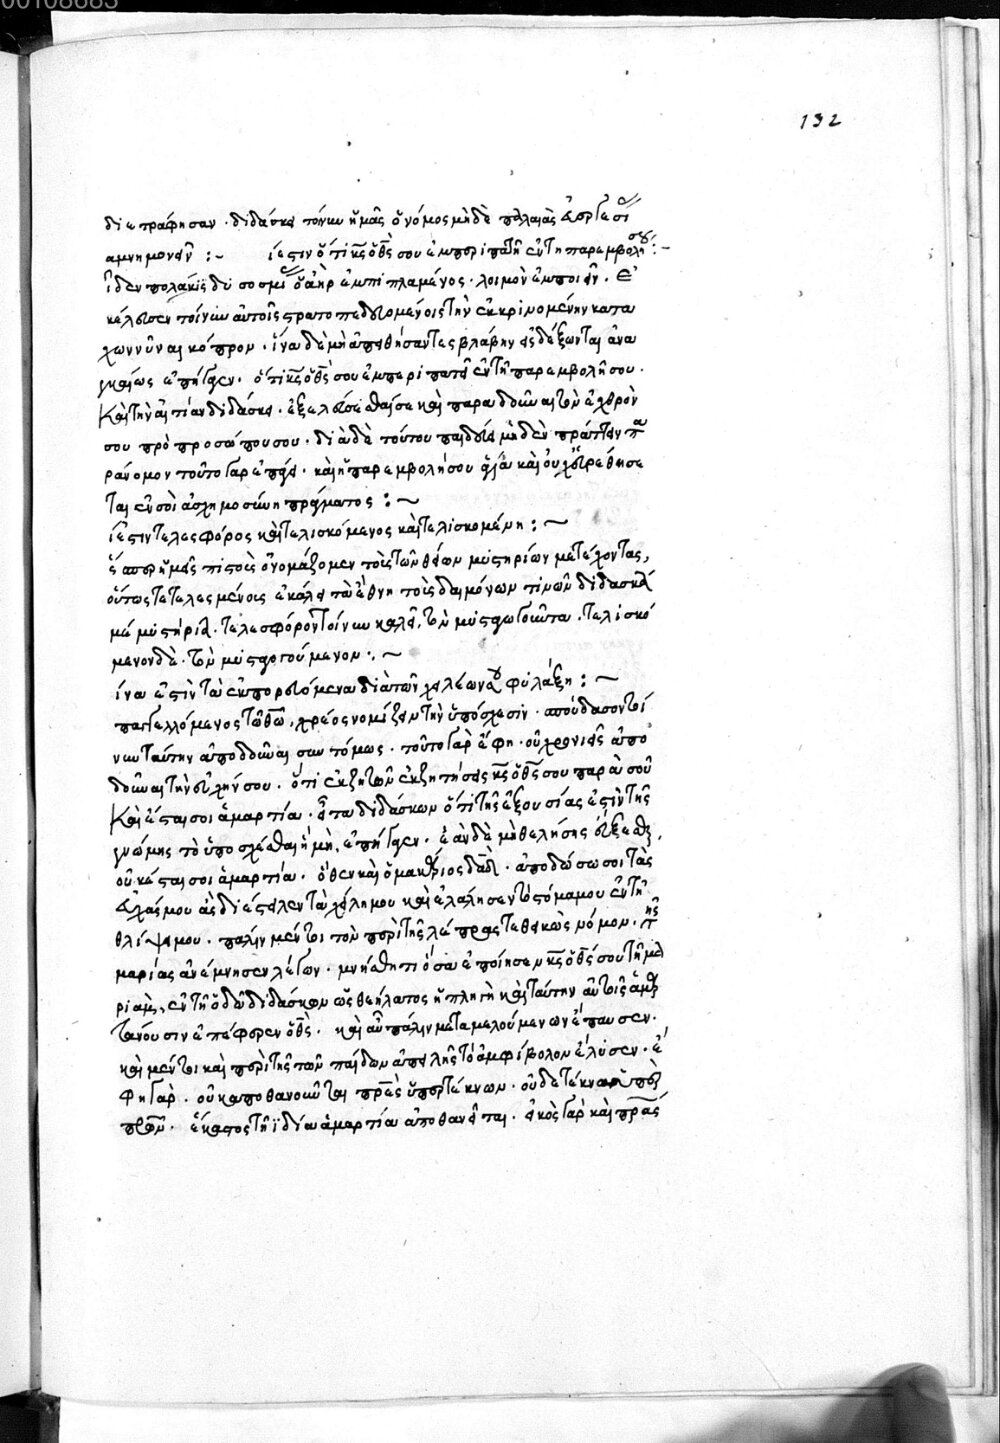 00108683
132
διετράφησαν · διδάσκει τοίνυν ἡμᾶς ὁ νόμος μὴ δὲ παλαιᾶς εὐεργεσί
ἀμνημονεῖν :~ τί ἐστιν ὅτι κς ὁ θς σου ἐμπεριπατεῖ ἐν τῇ παρεμβολῇ σου :~
δυσοσμί ὁ ἀὴρ ἐμπιπλάμενος · λοιμὸν ἐμποιεῖν · ἐ
κέλευσεν τοίνυν αὐτοῖς στρατοπεδευομένοις τὴν ἐκκρινομένην κατα
χωννῦναι κόπρον · ἵνα δὲ μὴ ἀπειθήσαντες βλάβην εἰσδέξωνται ἀνα
γκαίως ἐπήγαγεν · ὅτι κς ὁ θς σου ἐμπεριπατεῖ ἐν τῇ παρεμβολῇ σου ·
καὶ τὴν αἰτίαν διδάσκει · ἐξελέσθαι σε καὶ παραδοῦναι τὸν ἐχθρόν
σου πρὸ προσώπου σου · διὰ δὲ τούτου παιδεύει μηδὲν πράττειν πα
ράνομον τοῦτο γὰρ ἐπάγει · καὶ ἡ παρεμβολή σου ἁγία καὶ οὐχ εὑρεθήσε
ται ἐν σοὶ ἀσχημοσύνη πράγματος :~
τί ἐστιν τελεσφόρος καὶ τελισκόμενος καὶ τελισκομένη :~
ὥσπερ ἡμεῖς πιστοὺς ὀνομάζομεν τοὺς τῶν θείων μυστηρίων μετέχοντας,
οὕτως τετελεσμένους ἐκάλει τὰ ἔθνη τοὺς δαιμόνων τινῶν διδασκο
μέ μυστήρια · τελεσφόρον τοίνυν καλεῖ, τὸν μυσταγωγοῦντα · τελισκό
μενον δὲ · τὸν μυσταγωγούμενον :~
τίνα ἐστὶν τὰ ἐκπορευόμενα διὰ τῶν χειλέων σου φυλάξῃ :~
παγγελλόμενος τῷ θῶ, χρέος νομίζειν τὴν ὑπόσχεσιν · σπούδασον τοί
νυν ταύτην ἀποδοῦναι συντόμως · τοῦτο γὰρ ἔφη · οὐ χρονιεῖς ἀπο
δοῦναι τὴν εὐχήν σου · ὅτι ἐκζητῶν ἐκζητήσει κς ὁ θς σου παρὰ σοῦ
καὶ ἔσται σοι ἁμαρτία · εἶτα διδάσκων ὅτι τῆς ἐξουσίας ἐστὶν τῆς
γνώμης τὸ ὑποσχέσθαι ἢ μὴ, ἐπήγαγεν · ἐὰν δὲ μὴ θελήσῃς εὔξασθαι,
οὐκ ἔσται σοι ἁμαρτία · ὅθεν καὶ ὁ μακάριος δαδ · ἀποδώσω σοι τὰς
εὐχάς μου ἃς διέστειλεν τὰ χείλη μου καὶ ἐλάλησεν τὸ στόμα μου ἐν τῇ
θλίψει μου · πάλιν μέντοι τὸν περὶ τῆς λέπρας τεθεικὼς νόμον · τῆς
μαρίας ἀνέμνησεν λέγων · μνήσθητι ὅσα ἐποίησεν κς ὁ θς σου τῇ μα
ριὰμ, ἐν τῇ ὁδῷ διδάσκων ὡς θεήλατος ἡ πληγὴ καὶ ταύτην αὐτοῖς ἁμαρ
τάνουσιν ἐπέφερεν ὁ θς · καὶ αὖ πάλιν μεταμελουμένων ἔπαυσεν ·
καὶ μέντοι καὶ περὶ τῆς τῶν παίδων ἀπειλῆς τὸ ἀμφίβολον ἔλυσεν · ἔ
φη γάρ · οὐκ ἀποθανοῦνται πρες ὑπὲρ τέκνων · οὐδὲ τέκνα ὑπὲρ
πρων · ἕκαστος τῇ ἰδίᾳ ἁμαρτίᾳ ἀποθανεῖται · εἰκὸς γὰρ καὶ